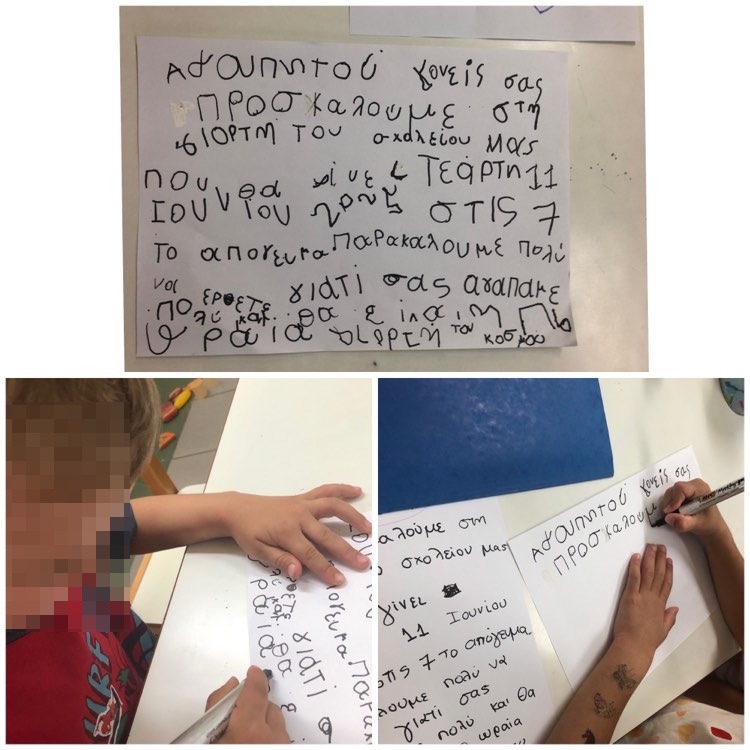 Αγαπητού γονείς σας
προσκαλουμε στη
γιορτη του σχολείου μας
που θα γίνει Τετάρτη 11
Ιουνίου 2025 στις 7
Το απογευμα Παρακαλουμε πολύ
να
ερθετε γιατί σας αγαπαμε
πολύ και θα είναι η πιο
ωραία γιορτη του κοσμου
αλούμε στη
σχολείου μας
γίνει
11 Ιουνίου
στις 7 το απόγευμα
λουμε πολύ να
γιατί σας
πολύ και θα
ωραία
Αγαπητού γονείς σας
προσκαλουμ